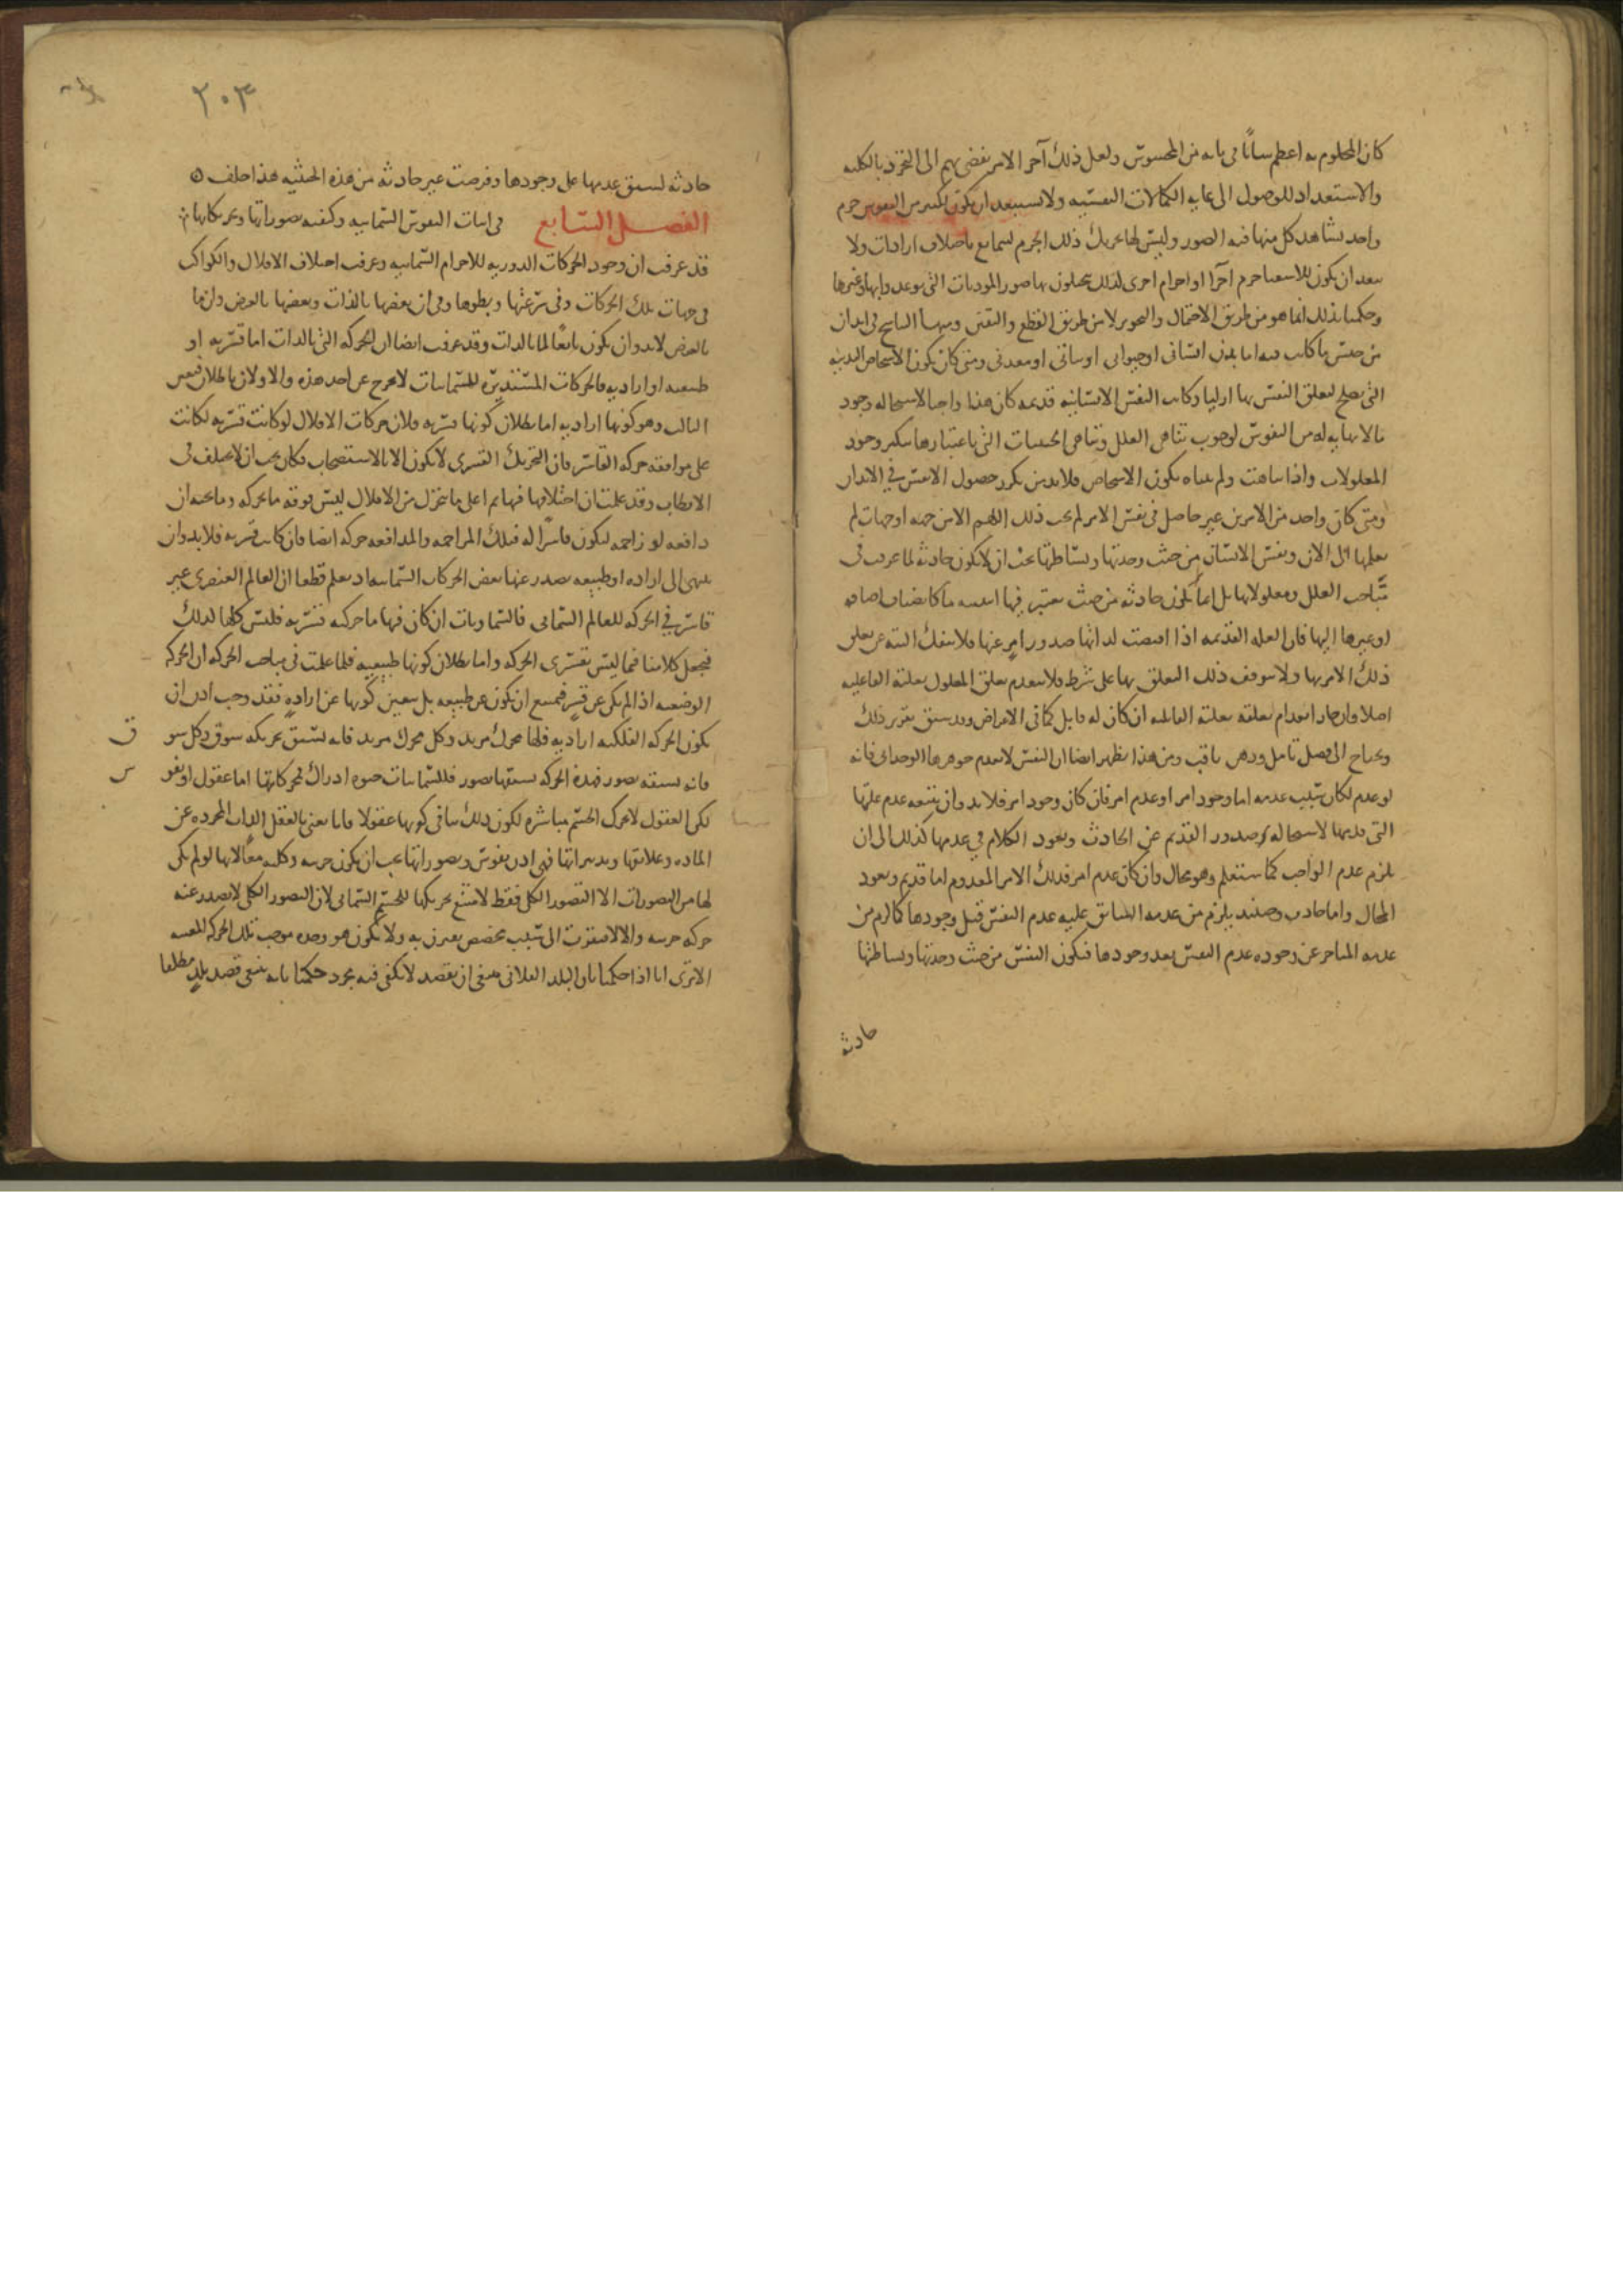 كان المعلوم به اعظم شأنا في بابه من المحسوس ولعل ذلك آخر الامر يفضي بهم الى التجرد بالكليه
والاستعداد للوصول الى غايه الكمالات النفسيه ولا تستبعد ان يكون لكثير من النفوس جرم
واحد يشاهد كل منها فيه الصور وليس لها تحريك ذلك الجرم ليتمانع باختلاف ارادات ولا
يبعد ان يكون للاشقيا جرم آخر او اجرام اخرى كذلك يتخيلون بها صور الموذيات التي توعدوا بها وغيرها
وحكمنا بذلك انما هو من طريق الاحتمال والتجويز لا من طريق القطع والتعين
من جنس ما كانت فيه اما بدن انساني او حيواني او نباتي او معدني ومتى كان يكون الاشخاص البدنيه
التي تصلح لتعلق النفس بها ازليا وكانت النفس الانسانيه قديمه كان هذا واجبا لاستحاله وجود
ما لا نهايه له من النفوس لوجوب تناهي العلل وتناهي الحيثيات التي باعتبارها يتكثر وجود
المعلولات واذا تناهت ولم يتناه تكون الاشخاص فلا بد من تكرر حصول الانفس في الابدان
ومتى كان واحد من الامرين غير حاصل في نفس الامر لم يجب ذلك اللهم الا من جهه او جهات لم
نعلمها الى الان ونفس الانسان من حيث وحدتها وبساطتها يجب ان لا تكون حادثه لما عرفت في
مباحث العلل ومعلولاتها بل انما تكون حادثه من حيث يعتبر فيها اثنينيه ما كانضياف اضافه
او غيرها اليها فان العله القديمه اذا اقتضت لذاتها صدور امر عنها فلا ينفك البته عن تعلق
ذلك الامر بها ولا يتوقف ذلك التعلق بها على شرط فلا ينعدم تعلق المعلول بعلته الفاعليه
اصلا وان جاز انعدام تعلقه بعلته القابله ان كان له قابل كما في الاعراض وقد سبق تقرير ذلك
ويحتاج الى فضل تامل وذهن ثاقب ومن هذا يظهر ايضا ان النفس لا ينعدم جوهرها الوحداني فانه
لو عدم لكان سبب عدمه اما وجود امر او عدم امر فان كان وجود امر فلا بد وان يتبعه عدم علتها
التي قدمها لاستحاله صدور القديم عن الحادث ويعود الكلام في عدمها كذلك الى ان
يلزم عدم الواجب كما ستعلم وهو محال وان كان عدم امر فذلك الامر المعدوم اما قديم ويعود
المحال واما حادث وحينئذ يلزم من عدمه السابق عليه عدم النفس قبل وجودها كما لزم من
عدمه المتاخر عن وجوده عدم النفس بعد وجودها فتكون النفس من حيث وحدتها وبساطتها
حادثه
٢٠٣
حادثه لسبق عدمها على وجودها وفرضت غير حادثه من هذه الحيثيه هذا خلف
الفصل السابع في اثبات النفوس السمائيه وكيفيه تصوراتها وتحريكاتها
قد عرفت ان وجود الحركات الدوريه للاجرام السمائيه وعرفت اختلاف الافلاك والكواكب
في جهات تلك الحركات وفي سرعتها وبطوها وفي ان بعضها بالذات وبعضها بالعرض وان ما
بالعرض لا بد وان يكون تابعا لما بالذات وقد عرفت ايضا ان الحركه التي بالذات اما قسريه او
طبيعيه او اراديه فالحركات المستديره للسمائيات لا تخرج عن احد هذه والاولان باطلان فتعين
الثالث وهو كونها اراديه اما بطلان كونها قسريه فلان حركات الافلاك لو كانت قسريه لكانت
على موافقه حركه القاسر فان التحريك القسري لا يكون الا بالاستصحاب فكان يجب ان لا يختلف في
الاقطاب وقد علمت ان اختلافها فيها ثم اعلى ما يتحرك من الافلاك ليس فوقه ما يحركه وما تحته ان
دافعه او زاحمه ليكون قاسرا له فتلك المزاحمه والمدافعه حركه ايضا فان كانت قسريه فلا بد وان
ينتهي الى اراده او طبيعه يصدر عنها بعض الحركات السمائيه اذ نعلم قطعا ان العالم العنصري غير
قاسر في الحركه للعالم السمائي فالسماويات ان كان فيها ما حركته قسريه فليس كلها كذلك
فنجعل كلامنا فيما ليس بقسري الحركه واما بطلان كونها طبيعيه فلما علمت في مباحث الحركه ان الحركه
الوضعيه اذا لم تكن عن قسر فيمتنع ان تكون عن طبيعه بل يتعين كونها عن اراده فقد وجب اذن ان
تكون الحركه الفلكيه اراديه فلها محرك مريد وكل محرك مريد فانه يسبق تحريكه شوق وكل شو
ق
فانه يسبقه تصور فهذه الحركه يسبقها تصور فللسمائيات حيوه ادراك فمحركاتها اما عقول او نفو
س
لكن العقول لا تحرك الجسم مباشره لكون ذلك ينافي كونها عقولا فانا نعني بالعقل الذات المجرده عن
الماده وعلائقها وتدبيراتها فهي اذن نفوس وتصوراتها يجب ان تكون جزئيه وكليه معا لانها لو لم يكن
لها من التصورات الا التصور الكلي فقط لامتنع تحريكها للجسم السمائي لان التصور الكلي لا يصدر عنه
حركه جزئيه والا لافتقرت الى سبب مخصص يقترن به ولا يكون هو وحده موجب تلك الحركه المعينه
الا ترى انا اذا حكمنا بان البلد الفلاني ينبغي ان يقصد لا يكفي فيه مجرد حكمنا بانه ينبغي قصد بلد مطلقا